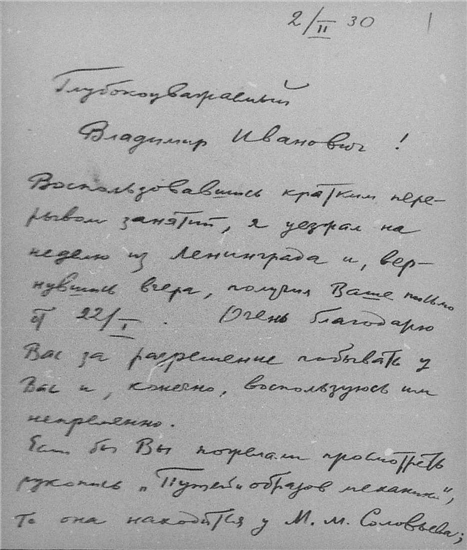 2/II 30
Глубокоуважаемый
Владимир Иванович!
Воспользовавшись кратким пере-
рывом занятий, я уезжал на
неделю из Ленинграда и, вер-
нувшись вчера, получил Ваше письмо
от 22/I. Очень благодарю
Вас за разрешение побывать у
Вас и, конечно, воспользуюсь им
непременно.
Если бы Вы пожелали просмотреть
рукопись „Путей и образов механики",
то она находится у М. М. Соловьева;